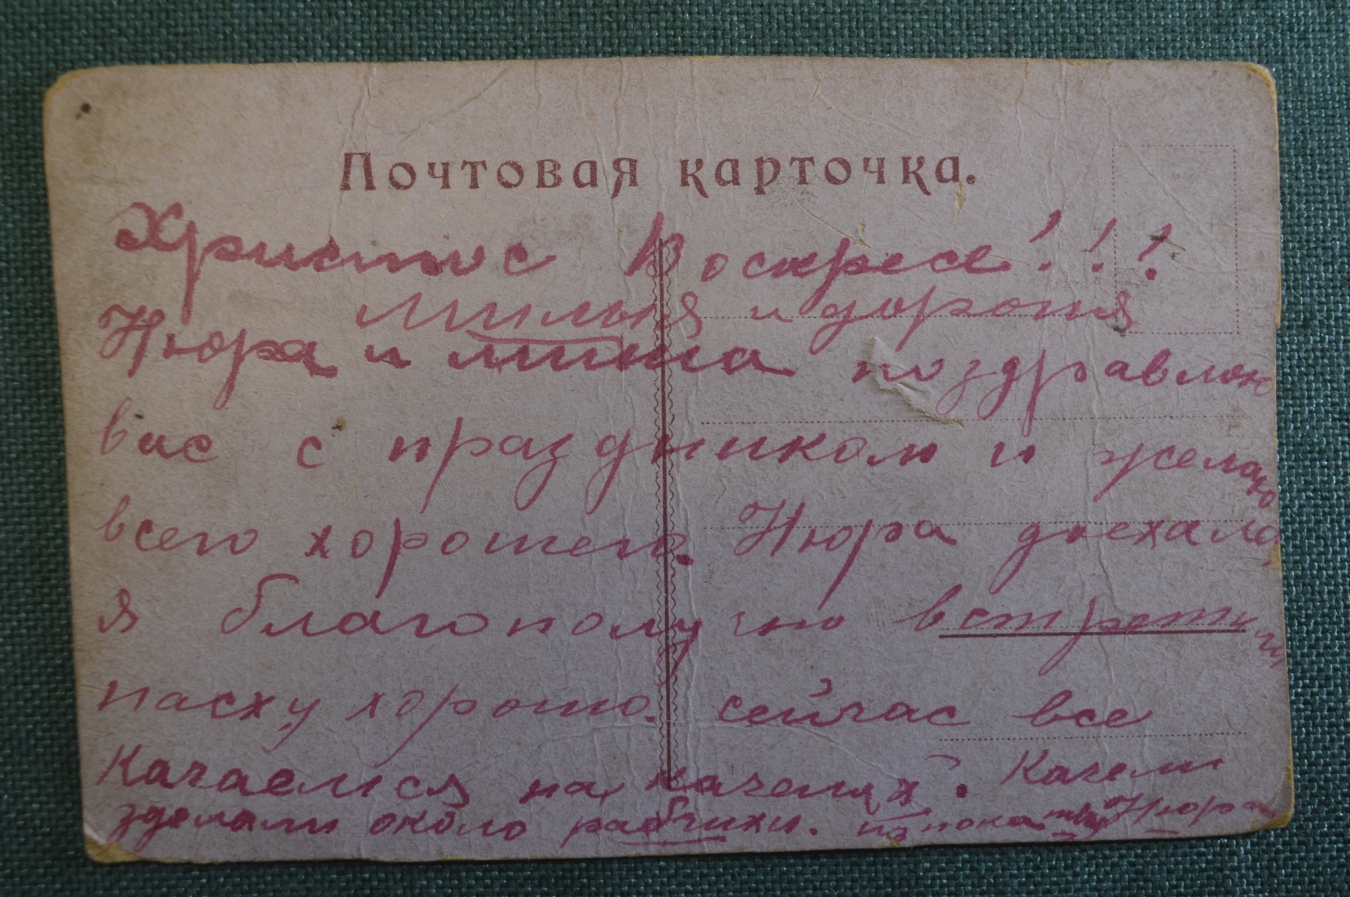 Почтовая карточка.
Христос Воскресе!!!
Милыя и дорогия
Нюра и миша поздравляю
вас с праздником и желаю
всего хорошего. Нюра доехала
я благополучно встретили
пасху хорошо. сейчас все
Качаемся на качелях. Качели
зделали около рабчихи. пока Нюра